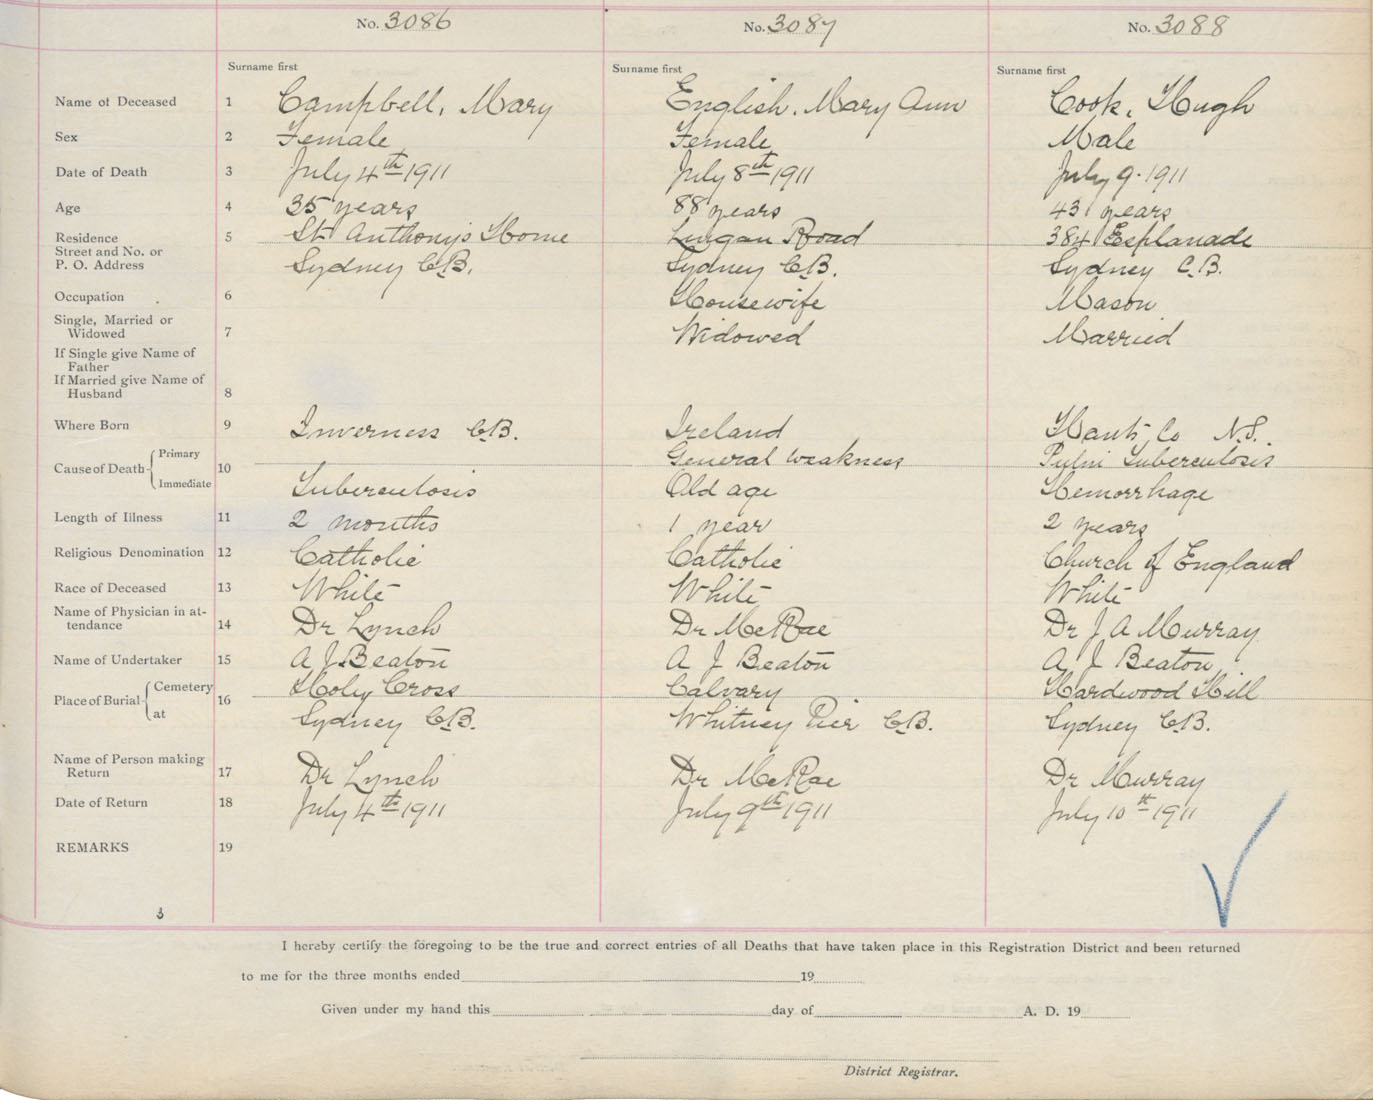 No. 3086 No. 3087 No. 3088
Surname first Surname first Surname first
Name of Deceased 1 Campbell, Mary English, Mary Ann Cook, Hugh
Sex 2 Female Female Male
Date of Death 3 July 4th 1911 July 8th 1911 July 9. 1911
Age 4 35 years 88 years 43 years
Residence 5 St Anthony's Home Lingan Road 384 Esplanade
Street and No. or
P. O. Address Sydney C.B. Sydney C.B. Sydney C.B.
Occupation 6 Housewife Mason
Single, Married or
Widowed 7 Widowed Married
If Single give Name of
Father
If Married give Name of
Husband 8
Where Born 9 Inverness C.B. Ireland Hants Co N.S.
Primary General weakness Pulm Tuberculosis
Cause of Death 10
Immediate Tuberculosis Old age Hemorrhage
Length of Illness 11 2 months 1 year 2 years
Religious Denomination 12 Catholic Catholic Church of England
Race of Deceased 13 White White White
Name of Physician in at-
tendance 14 Dr Lynch Dr McRae Dr J A Murray
Name of Undertaker 15 A J Beaton A J Beaton A J Beaton
Cemetery Holy Cross Calvary Hardwood Hill
Place of Burial 16
at Sydney C.B. Whitney Pier C.B. Sydney C.B.
Name of Person making
Return 17 Dr Lynch Dr McRae Dr Murray
Date of Return 18 July 4th 1911 July 9th 1911 July 10th 1911
REMARKS 19
I hereby certify the foregoing to be the true and correct entries of all Deaths that have taken place in this Registration District and been returned
to me for the three months ended 19
Given under my hand this day of A. D. 19
District Registrar.